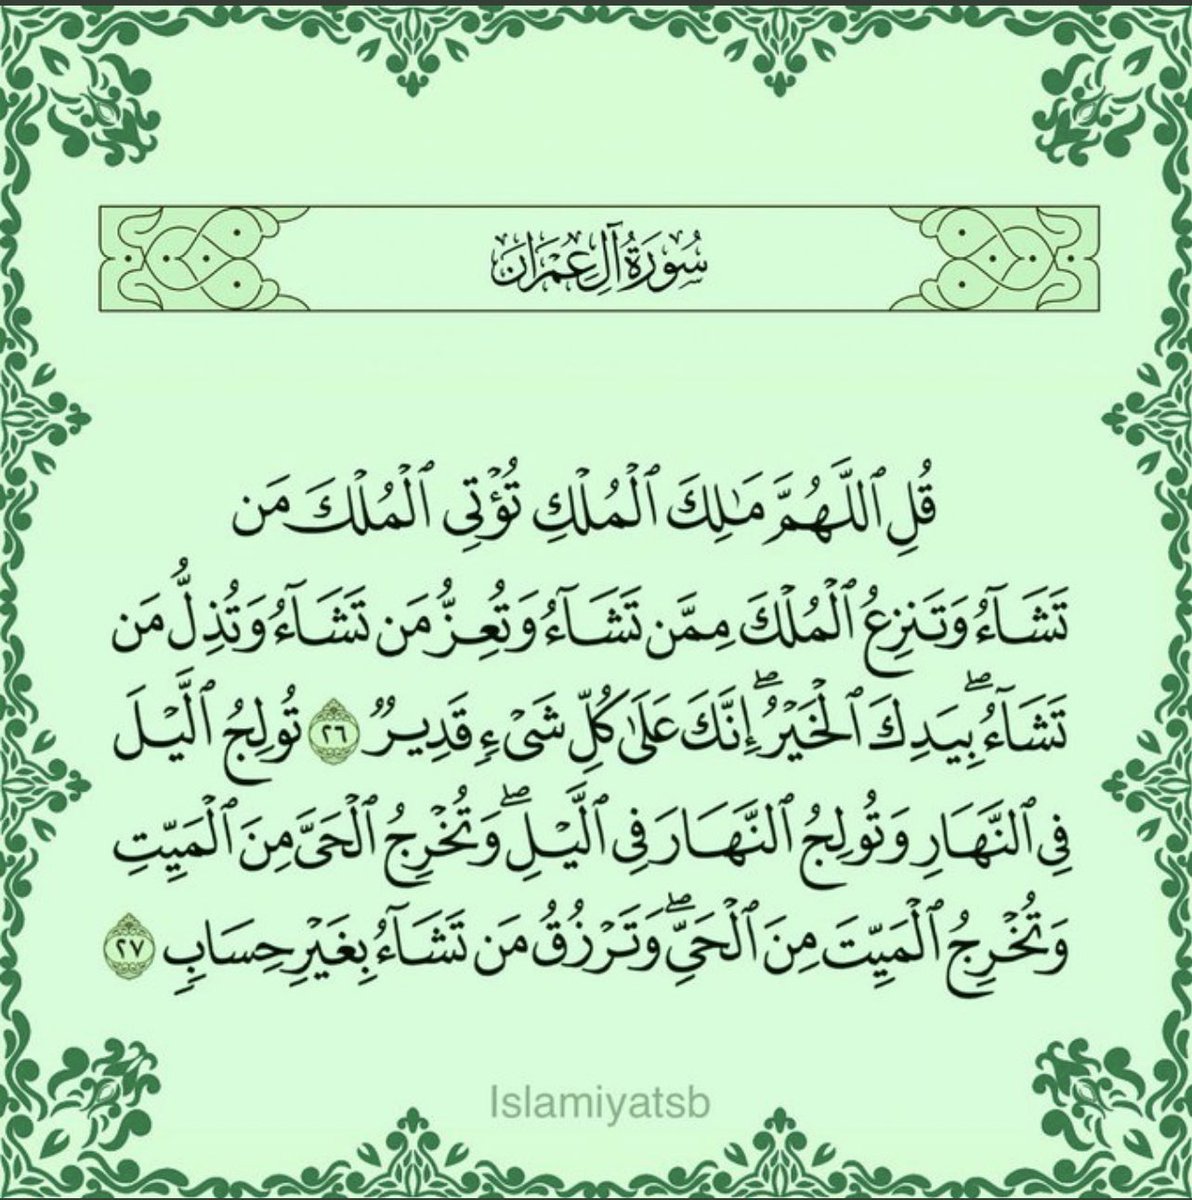 سُورَةُ آلِ عِمْرَانَ
قُلِ ٱللَّهُمَّ مَٰلِكَ ٱلْمُلْكِ تُؤْتِى ٱلْمُلْكَ مَن
تَشَآءُ وَتَنزِعُ ٱلْمُلْكَ مِمَّن تَشَآءُ وَتُعِزُّ مَن تَشَآءُ وَتُذِلُّ مَن
تَشَآءُ ۖ بِيَدِكَ ٱلْخَيْرُ ۖ إِنَّكَ عَلَىٰ كُلِّ شَىْءٍ قَدِيرٌ ٢٦ تُولِجُ ٱلَّيْلَ
فِى ٱلنَّهَارِ وَتُولِجُ ٱلنَّهَارَ فِى ٱلَّيْلِ ۖ وَتُخْرِجُ ٱلْحَىَّ مِنَ ٱلْمَيِّتِ
وَتُخْرِجُ ٱلْمَيِّتَ مِنَ ٱلْحَىِّ ۖ وَتَرْزُقُ مَن تَشَآءُ بِغَيْرِ حِسَابٍ ٢٧
Islamiyatsb